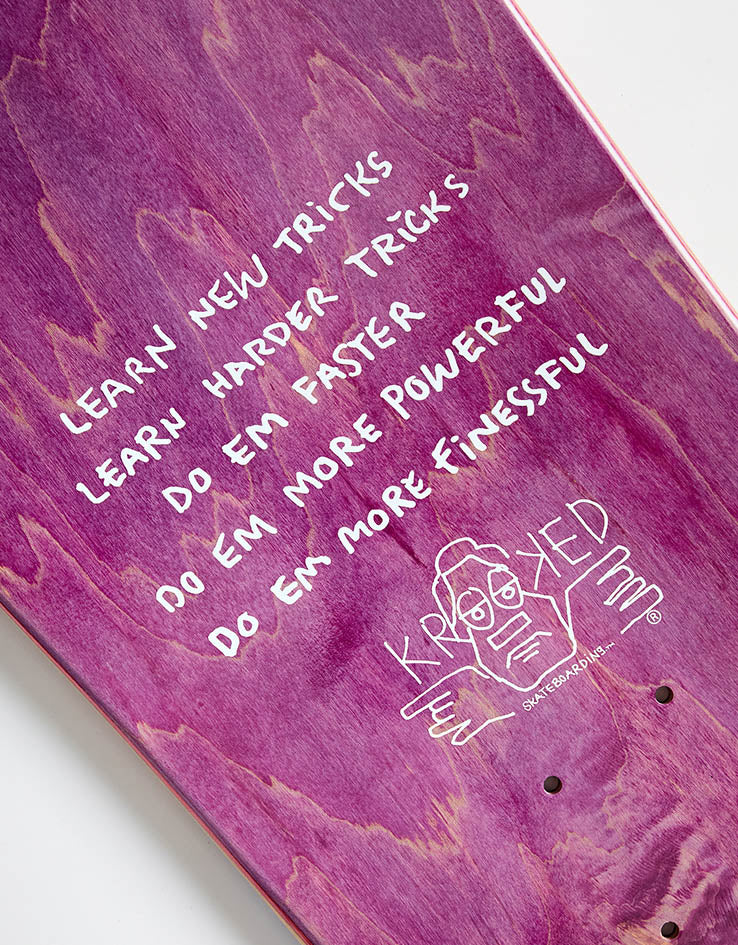 LEARN NEW TRiCKS
LEARN HARDER TRiCKS
DO EM FASTER
DO EM MORE POWERFUL
DO EM MORE FiNESSFUL
KROOKED
SKATEBOARDiNG.™
®